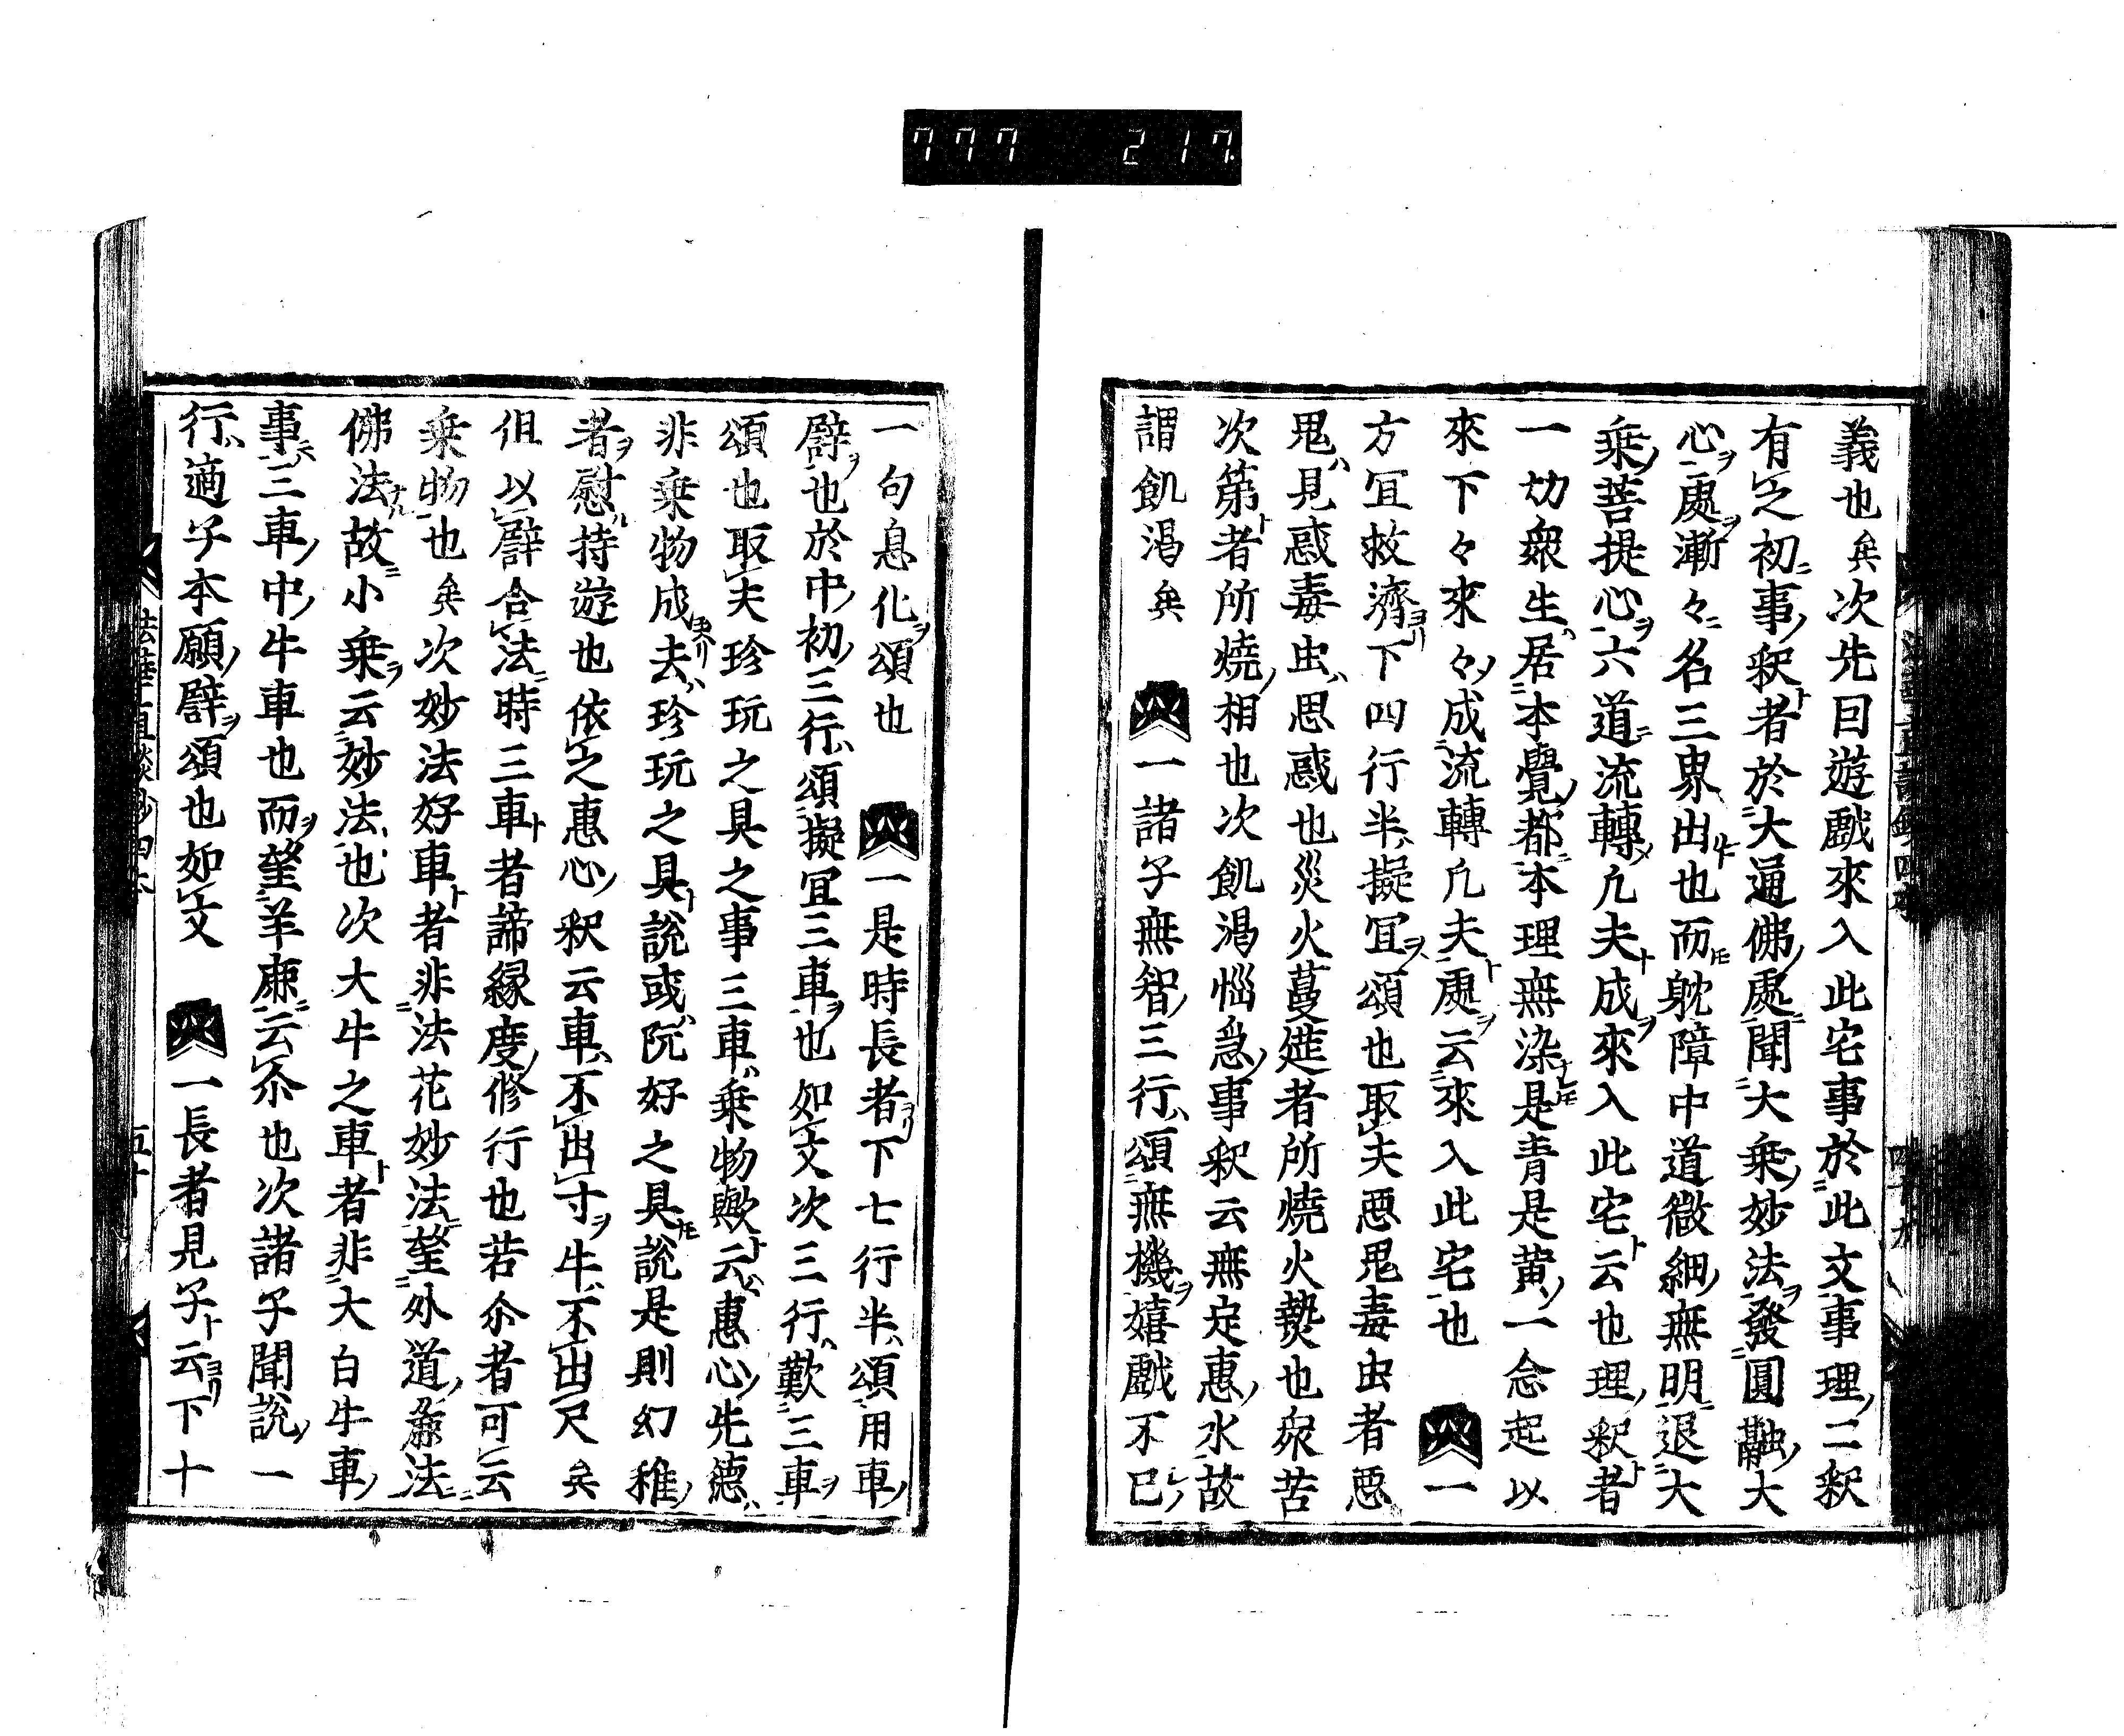 777 217
義也矣次先因遊戲來入此宅事於此文事理二釈
有之初事釈者於大通佛處聞大乗妙法發圓融大
心處漸々名三界出也而躭障中道微細無明退大
乗菩提心六道流轉凢夫成來入此宅云也理釈者
一切衆生居本覺都本理無染是青是黄一念起以
來下々來々成流轉凢夫處云來入此宅也 一
方冝救濟下四行半擬冝頌也取夫悪鬼毒虫者悪
鬼見惑毒虫思惑也災火蔓莚者所燒火爇也衆苦
次第者所燒相也次飢渇惱急事釈云無定惠水故
謂飢渇矣 一諸子無智三行頌無機嬉戲不已
一句息化頌也 一是時長者下七行半頌用車
譬也於中初三行頌擬冝三車也如文次三行歎三車
頌也取夫珍玩之具之事三車乗物歟云惠心先德
非乗物成夫珍玩之具說或玩好之具說是則幻稚
者慰持遊也依之惠心釈云車不出寸牛不出尺矣
但以譬合法時三車者諦縁度修行也若尒者可云
乗物也矣次妙法好車者非法花妙法望外道麁法
佛法故小乗云妙法也次大牛之車者非大白牛車
事三車中牛車也而望羊鹿云尒也次諸子聞說一
行適子本願譬頌也如文 一長者見子云下十
法華直談鈔四本 五十